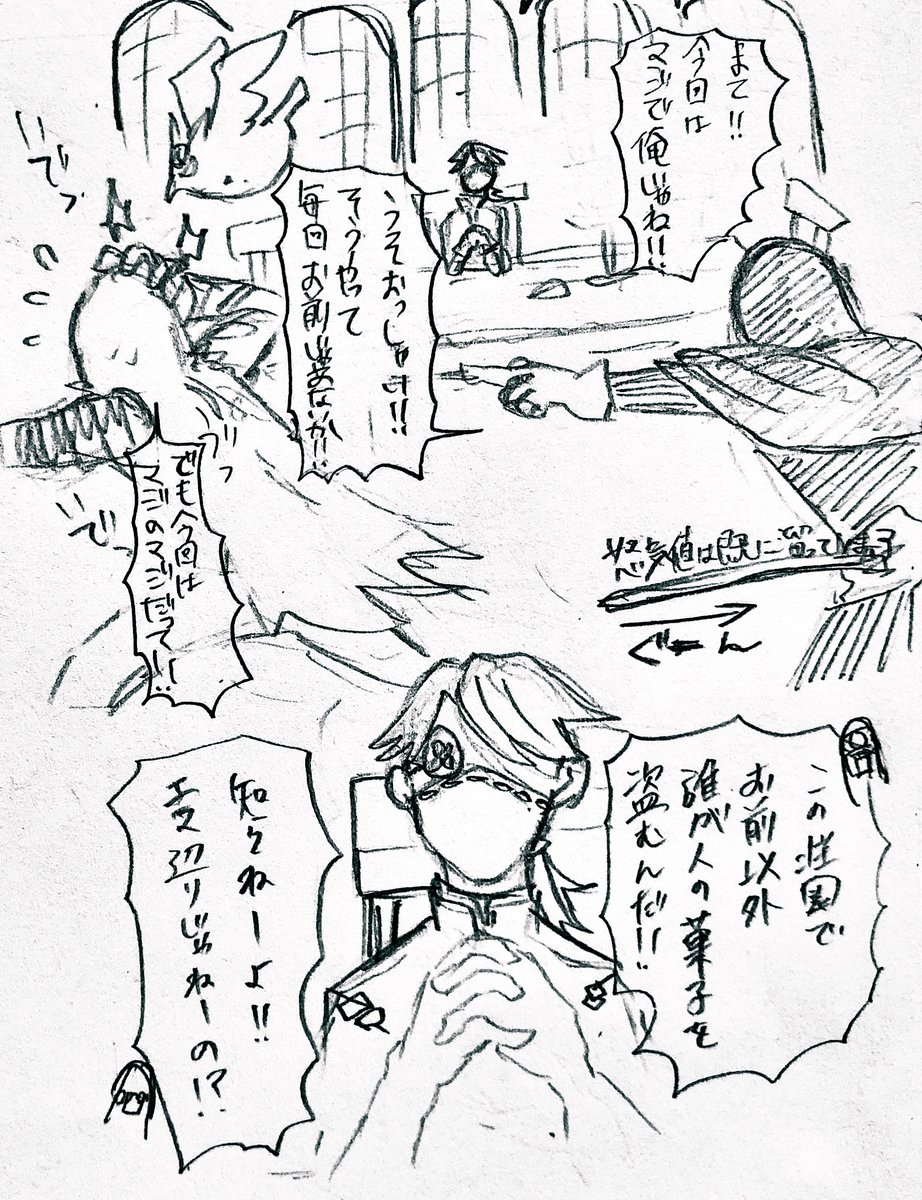 まて!!
今回は
マジで俺じゃね!!
うそおっしゃい!!
そうやって
毎回お前じゃあないか!!
いでっ
いでっ
でも今回は
マジのマジだって!!
怒気値は既に溜って
ぐーん
この荘園で
お前以外
誰が人の菓子を
盗むんだ!!
知らねーよ!!
エマ辺りじゃねーの!?